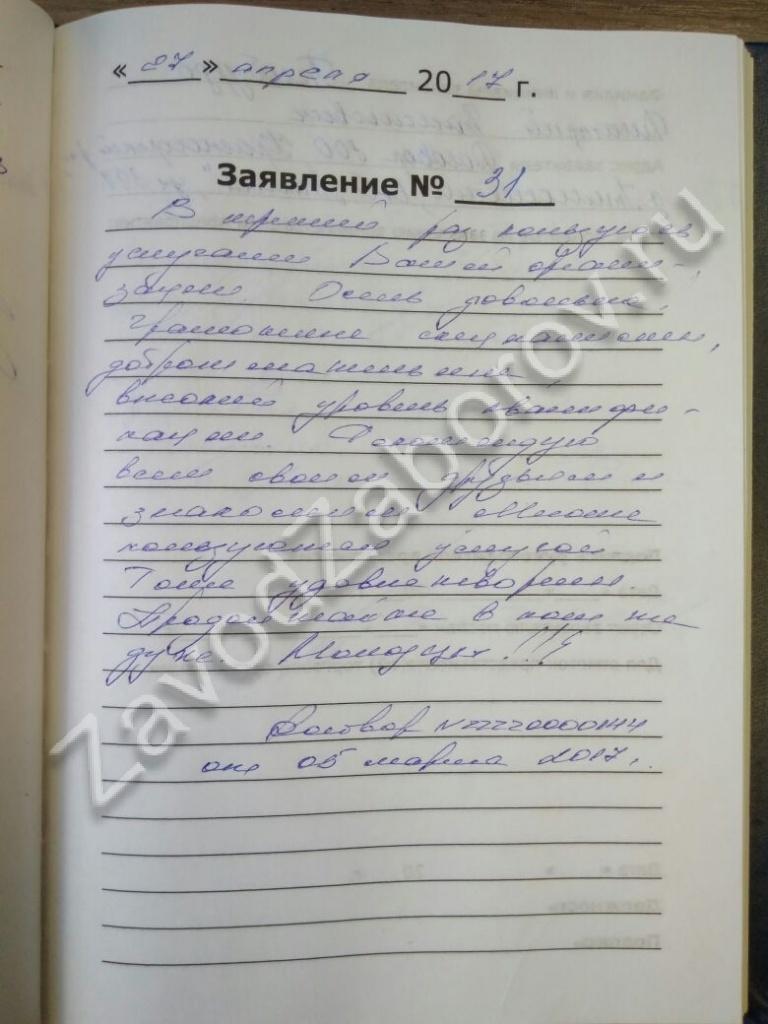 « 27 » апреля 20 17 г.
Заявление № 31
В третий раз пользуюсь
услугами Вашей органи-
зации. Очень довольна,
Грамотные специалисты,
доброжелательны,
высокий уровень квалифи-
кации. Рекомендую
всем своим друзьям и
знакомым. Многие
пользуются услугой
Тоже удовлетворены
Продолжайте в том же
духе. Молодцы!!!
Договор
от 05 марта 2017г.
ZavodZaborov.ru